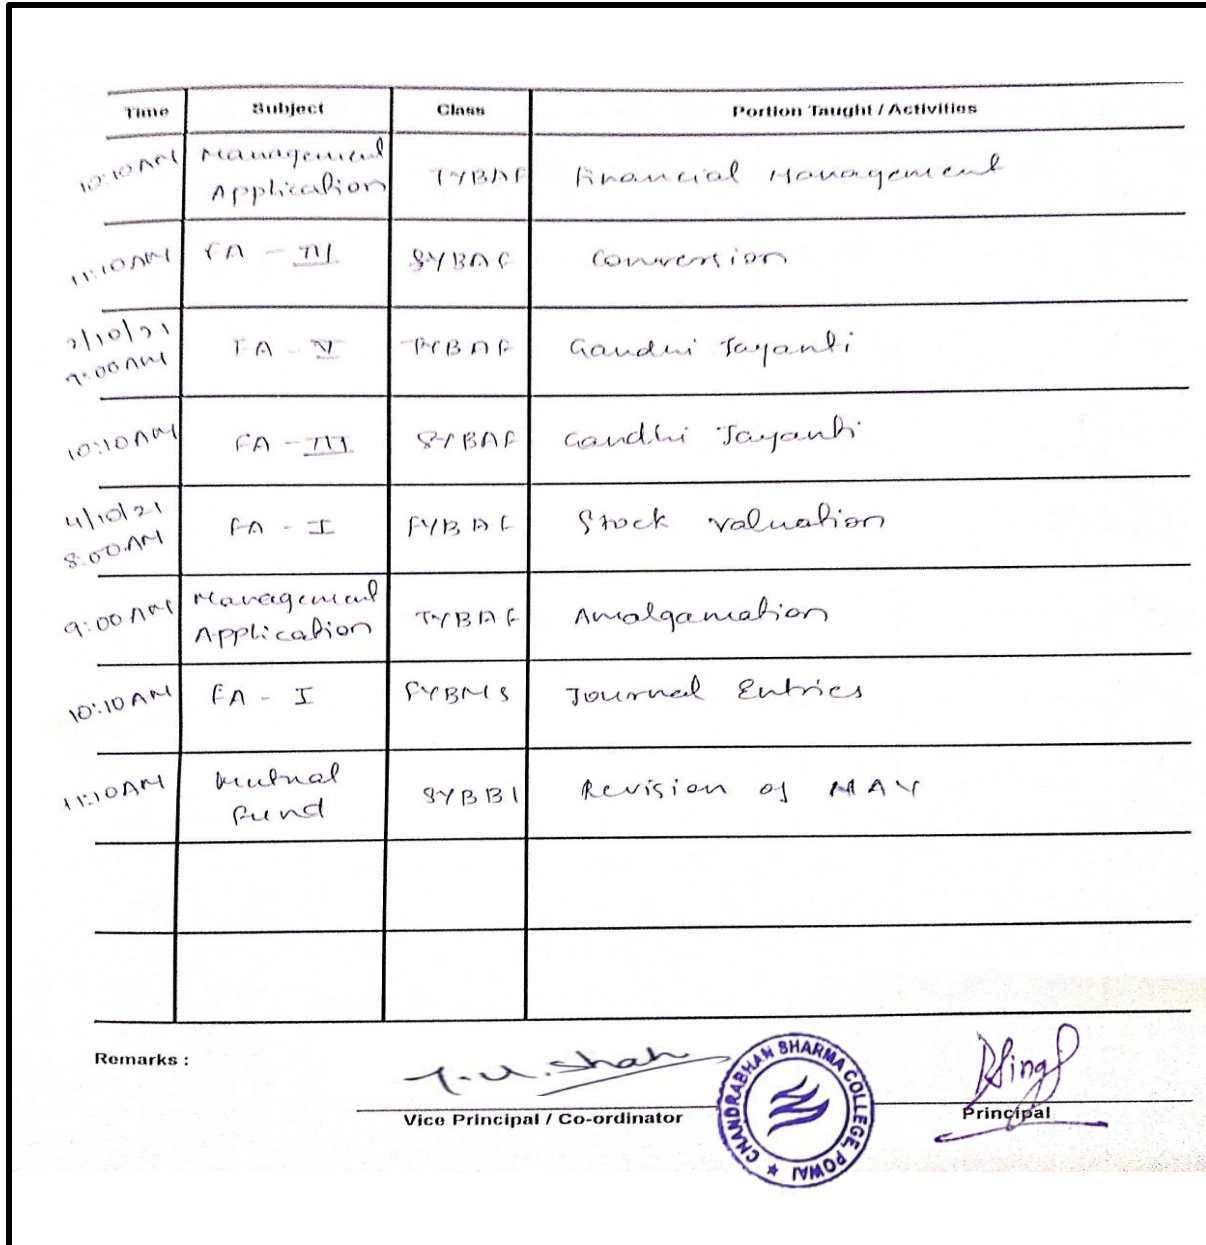 Time Subject Class Portion Taught / Activities
10:10 AM Management Application TYBAF Financial Management
11:10 AM FA - III SYBAF Conversion
2/10/21
9:00 AM FA - V TYBAF Gandhi Jayanti
10:10 AM FA - III SYBAF Gandhi Jayanti
4/10/21
8:00 AM FA - I FYBAF Stock Valuation
9:00 AM Management Application TYBAF Amalgamation
10:10 AM FA - I FYBMS Journal Entries
11:10 AM Mutual Fund SYBBI Revision of NAV
Remarks :
T.U. Shah
Vice Principal / Co-ordinator
CHANDRABHAN SHARMA COLLEGE POWAI
Principal